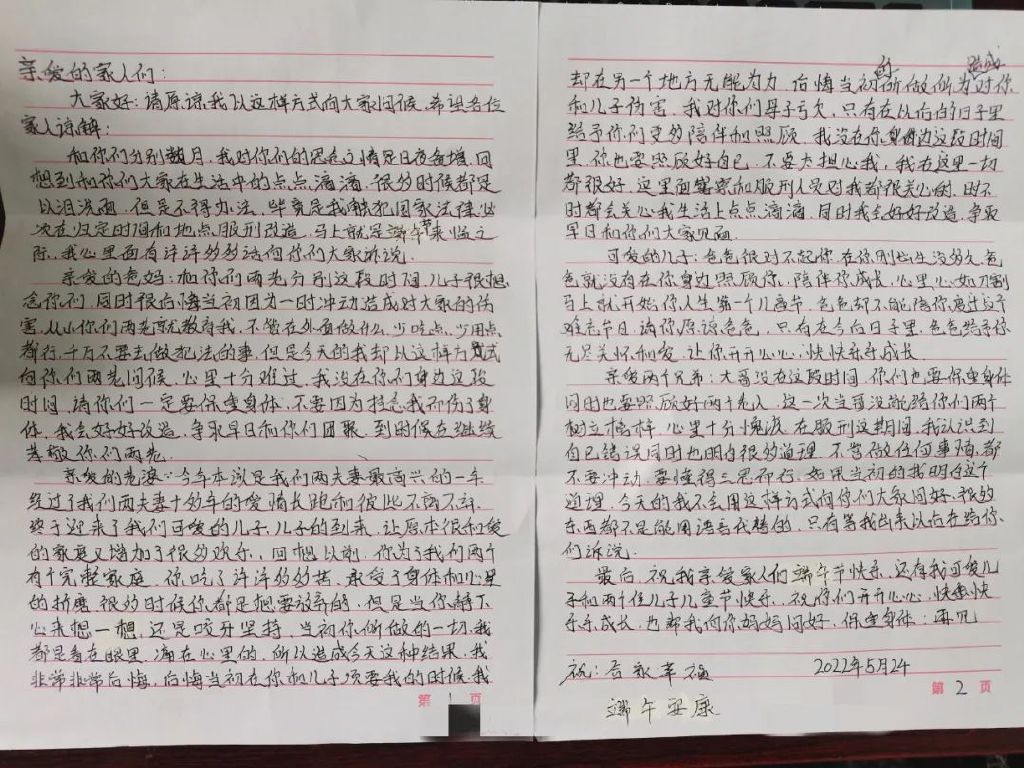 亲爱的家人们:
大家好:请原谅我以这样方式向大家问候,希望各位
家人谅解:
和你们分别数月,我对你们的思念之情是日夜备增,回
想到和你们大家在生活中的点点滴滴,很多时候都是
以泪洗面,但是不得办法,毕竟是我触犯国家法律,必
次在归定时间和地点服刑改造,马上就是端午节来临之
际,我心里面有许许多多的话向你们大家诉说.
亲爱的爸妈:和你们两老分别这段时间,儿子很想
念你们,同时很后悔当初因为一时冲动造成对大家的伤
害,从小你们两老就教育我,不管在外面做什么,少吃点,少用点
都行,千万不要去做犯法的事,但是今天的我却以这样方式
向你们两老问候,心里十分难过,我没在你们身边这段
时间,请你们一定要保重身体,不要因为挂念我而伤了身
体,我会好好改造,争取早日和你们团聚,到时候在继续
孝敬你们两老.
亲爱的老婆:今年本该是我们两夫妻最高兴的一年
经过了我们两夫妻十多年的爱情长跑和彼此不离不弃,
终于迎来了我们可爱的儿子,儿子的到来,让原本很和爱
的家庭又增加了很多欢乐,回想以前,你为了我们两个
有个完整家庭,你吃了许许多多的苦,承受了身体和心里
的折磨,很多时候你都是想要放弃的,但是当你静下
心来想一想,还是咬牙坚持,当初你所做的一切,我
都是看在眼里,痛在心里的,所以造成今天这种结果,我
非常非常后悔,后悔当初在你和儿子须要我的时候,我
第 1 页
却在另一个地方无能为力,后悔当初的所做所为造成对你
和儿子伤害,我对你们母子亏欠,只有在以后的日子里
给予你们更多陪伴和照顾,我没在你身边这段时间
里,你也要照顾好自己,不要太担心我,我在这里一切
都很好,这里面警察和服刑人员对我都很关心的,时不
时都会关心我生活上点点滴滴,同时我会好好改造,争取
早日和你们大家见面.
可爱的儿子:爸爸很对不起你,在你刚出生没多久,爸
爸就没有在你身边照顾你,陪伴你成长,心里心如刀割
马上就开始你人生第一个儿童节,爸爸却不能陪你度过这个
难忘节日,请你原谅爸爸,只有在今后日子里,爸爸给予你
无尽关怀和爱,让你开开心心,快快乐乐成长.
亲爱两个兄弟:大哥没在这段时间,你们也要保重身体
同时也要照顾好两个老人,这一次当哥没能跟你们两个
树立榜样,心里十分愧疚,在服刑这期间,我认识到
自己错误同时也明白很的道理,不管做任何事情,都
不要冲动,要懂得三思而行,如果当初的我明白这个
道理,今天的我不会用这样方式向你们大家问好,很多
东西都不是能用语言代替的,只有等我出来以后在给你
们诉说.
最后,祝我亲爱家人们端午节快乐,还有我可爱儿
子和两个侄儿子儿童节快乐,祝你们开开心心,快快快
乐乐成长,也帮我向你妈妈问好,保重身体:再见
祝:合家幸福
2022年5月24
端午安康
第 2 页